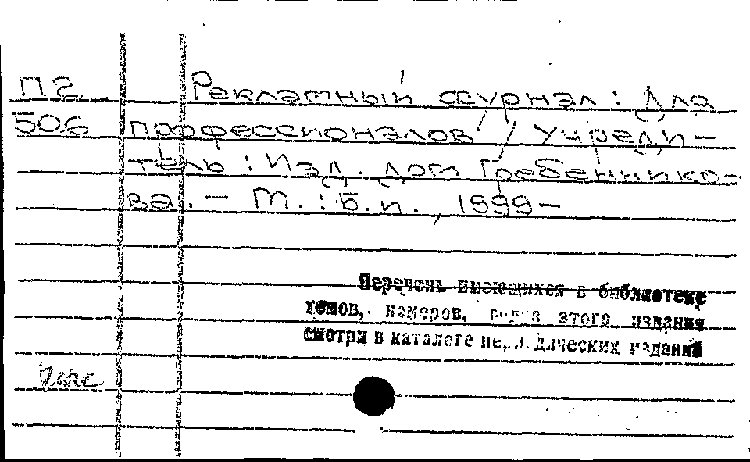 П2 Рекламный журнал: Для
506 профессионалов / Учреди-
тель: Изд. дом Гребеннико-
ва. - М.: Б.и., 1999-
Перечень имеющихся в библиотеке
томов, номеров, годов этого издания
смотри в каталоге периодических изданий